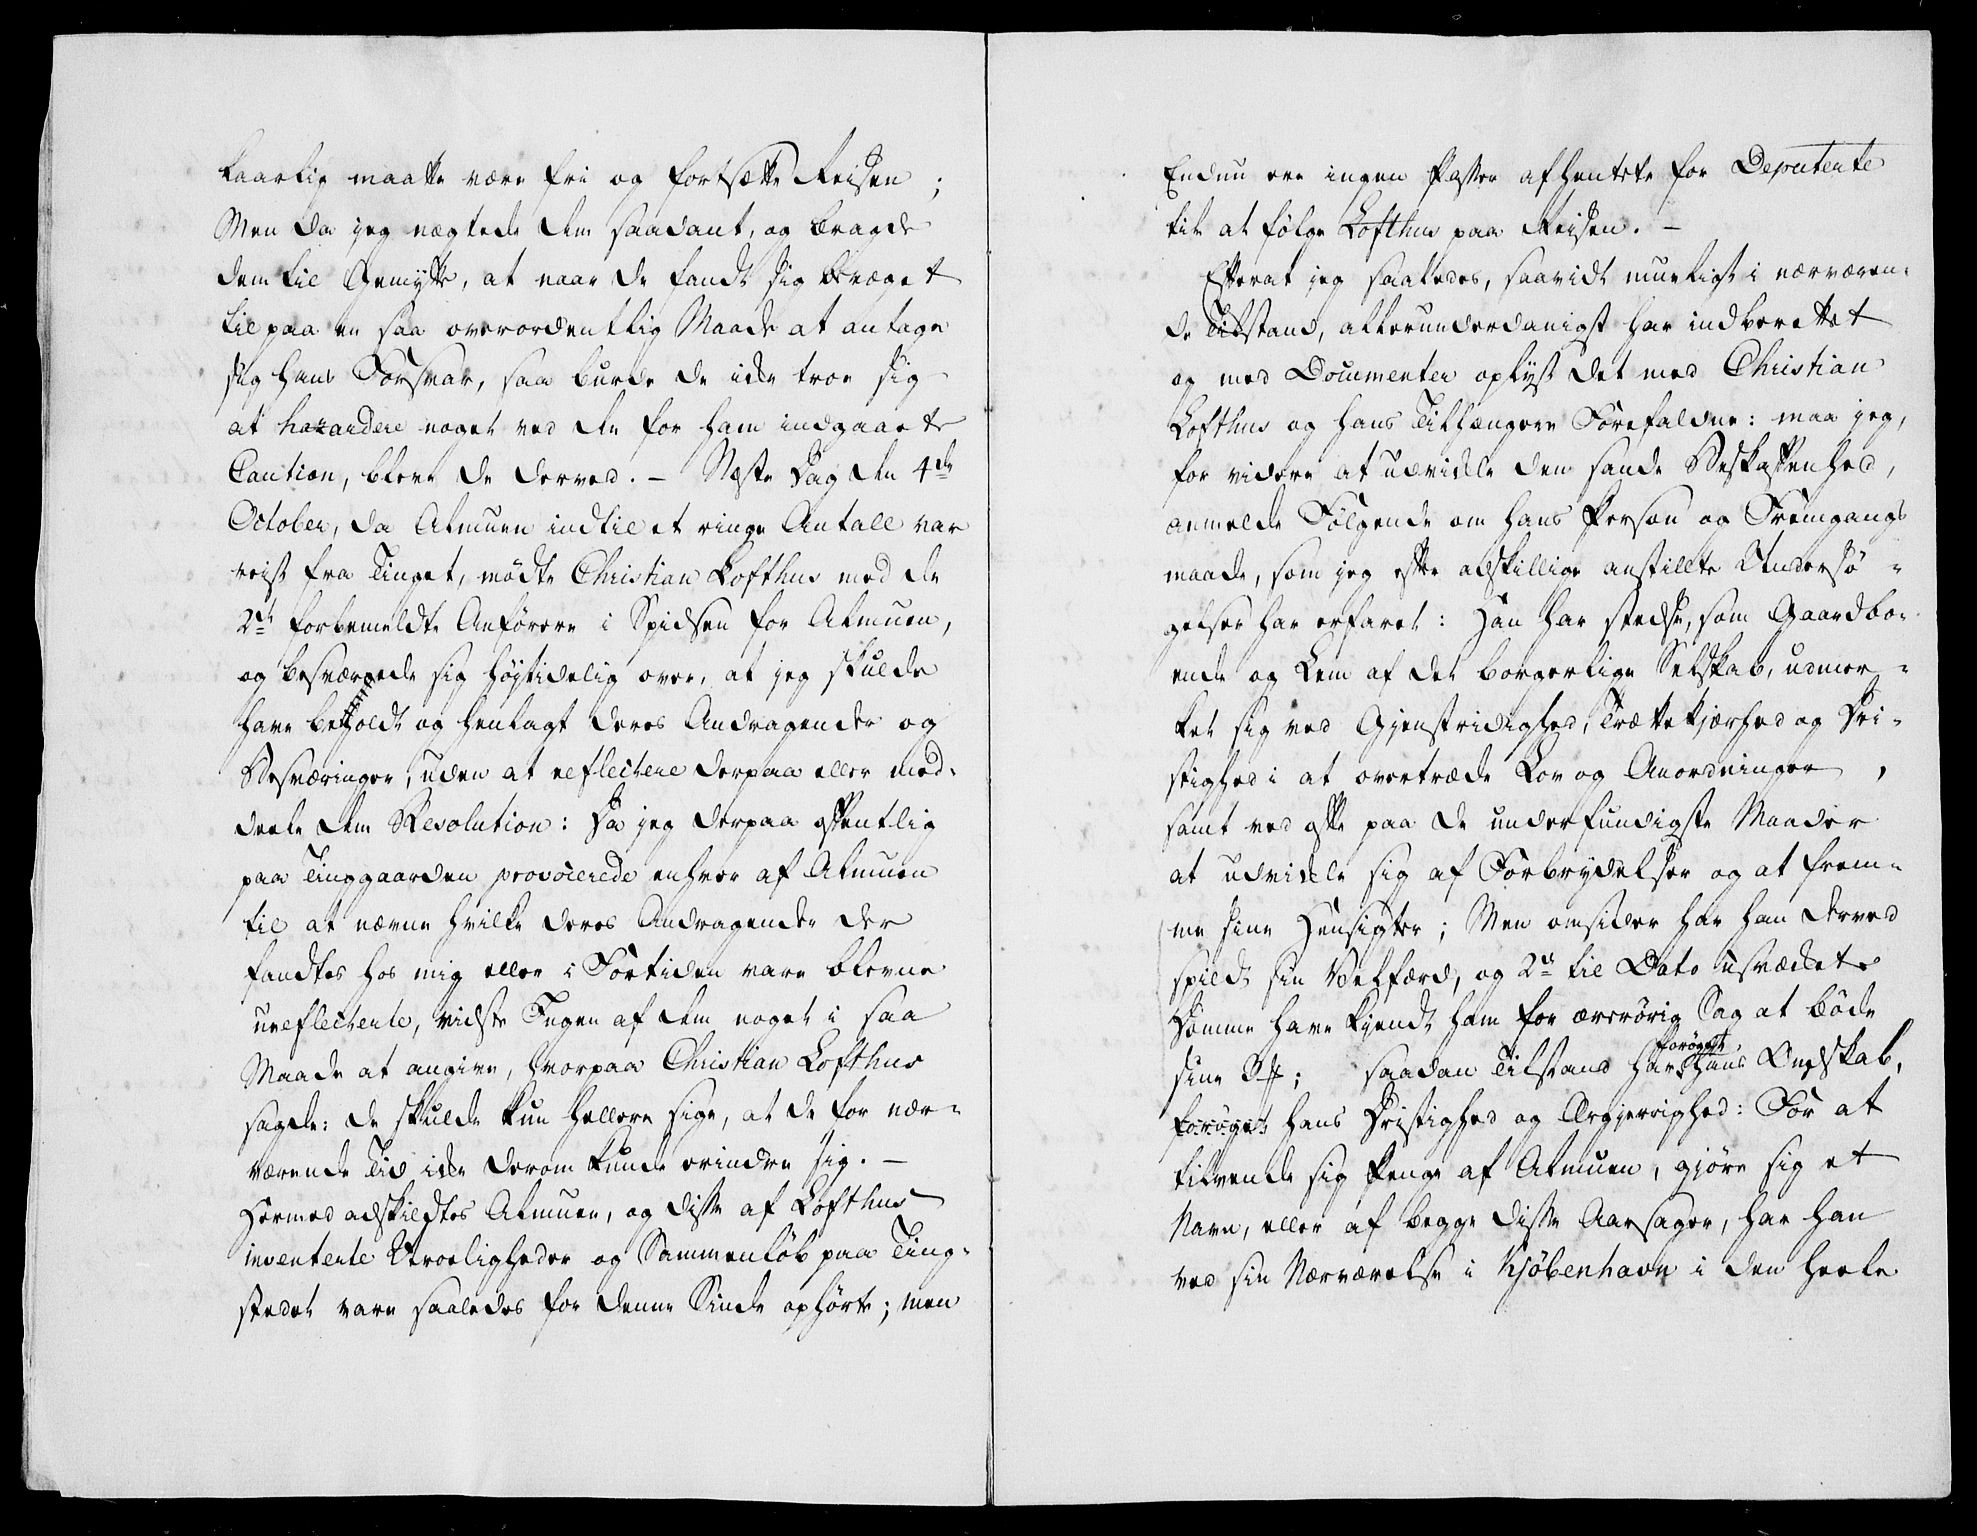 kaarlig maatte være fri og fortsætte Reisen;
Men da jeg nægtede dem saadant, og bragde
dem til Gemytte, at naar de fandt sig bevæget
til paa en saa overordentlig Maade at antage
sig hans Forsvar, saa burde de icke troe sig
at hazardere noget ved den for ham indgaaete
Caution, bleve de derved. – Næste Dag den 4de
October, da Almuen indtil et ringe Antall var
reist fra Tinget, mödte Christian Lofthus med de
2de forbemeldte Anförere i Spidsen for Almuen,
og besværgede sig höjtidelig over, at jeg skulde
have beholdt og henlagt deres Andragender og
Besværinger, uden at reflectere derpaa eller med-
deele dem Resolution: Da jeg derpaa offentlig
paa Tinggaarden provocerede enhver af Almuen
til at nævne hvilke deres Andragender der
fandtes hos mig eller i Fortiden vare blevne
ureflecterte, vidste Ingen af dem noget i saa
Maade at angive, hvorpaa Christian Lofthus
sagde: de skulde kun hellere sige, at de for nær-
værende Tid icke derom kunde erindre sig. –
Hermed adskildtes Almuen, og disse af Lofthus
inventerte Uroeligheder og Sammenlöb paa Ting-
stedet vare saaledes for denne Sinde ophörte; men
Endnu ere ingen Passer afhentete for Deputerte
til at fölge Lofthus paa Reisen. –
Efterat jeg saaledes, saavidt mueligt i nærværen-
de Tilstand, allerunderdanigst har indberettet
og med Documenter oplyst det med Christian
Lofthus og hans Tilhængere Forefaldne: maa jeg,
for videre at udvickle den sande Beskaffenhed,
anmelde Fölgende om hans Person og Fremgangs
maade, som jeg efter adskillige anstillte Undersö-
gelser har erfaret: Han har stedse, som Gaardbo-
ende og Lem af det borgerlige Selskab, udmer-
ket sig ved Gjenstridighed, Trættekjærhed og Dri-
stighed i at overtræde Lov og Anordninger,
samt ved ofte paa de underfundigste Maader
at udvickle sig af Forbrydelser og at frem-
me sine Hensigter; Men omsider har han derved
spildt sin Velfærd, og 2de til Dato usvæckete
Domme have kjendt ham for ærerörig Sag at böde
sine 3 #; saadan Tilstand har foröget hans Ondskab,
foröget hans Dristighed og Ærgjerrighed: For at
tilvende sig Penge af Almuen, gjöre sig et
Navn, eller af begge disse Aarsager, har han
ved sin Nærværelse i Kjöbenhavn i den heele